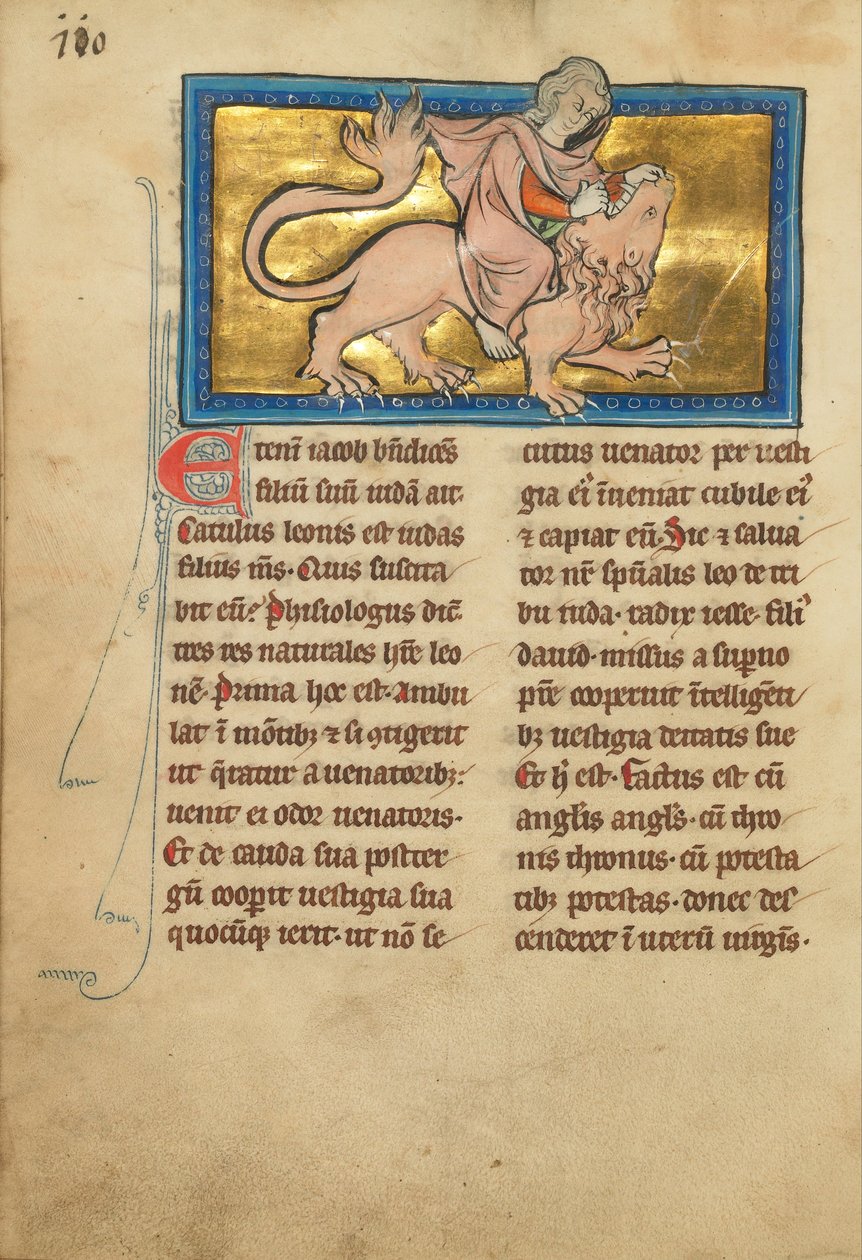 iio
Etenī iacob bn̄dicēs
filiū suū iudā ait·
Catulus leonis est iudas
filius ms̄· Quis suscita
bit eū? Phisiologus dic̄
tres res naturales hr̄e leo
nē· Prima hec est· Ambu
lat ī mōtibꝫ ⁊ si ꝯtigerit
ut q̄ratur a uenatoribꝫ:
uenit ei odor uenatoris·
Et de cauda sua postter
gū coop̄it uestigia sua
quocūqꝫ ierit· ut nō se
cutus uenator per uesti
gia eiꝰ īueniat cubile eiꝰ
⁊ capiat eū· Sic ⁊ salua
tor nr̄ sp̄ualis leo de tri
bu iuda· radix iesse· filiꝰ
dauid· missus a sup̄no
pr̄e cooperuit ītelligēti
bꝫ uestigia deitatis sue
Et h̄ est· Factus est cū
angl̄is angl̄s· cū thro
nis thronus· cū potesta
tibꝫ potestas· donec des
cenderet ī uterū uirgīs·